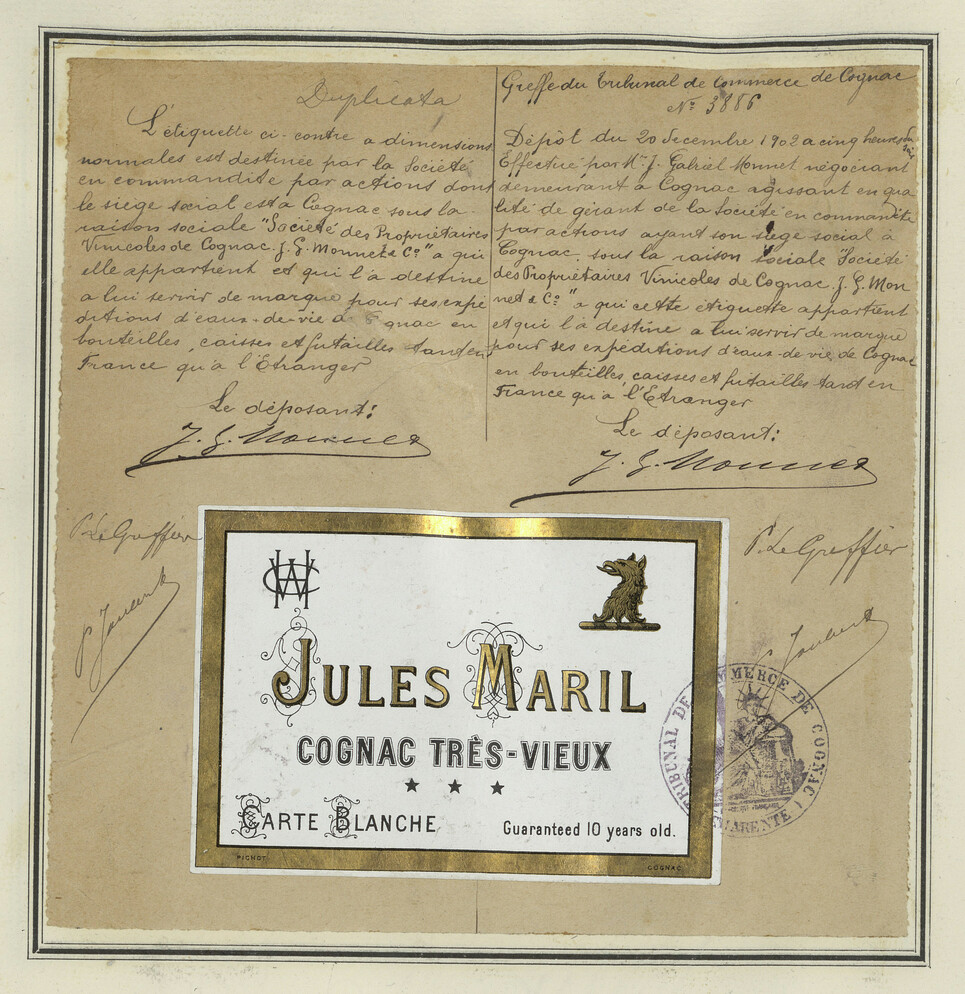 Duplicata
L'étiquette ci-contre a dimensions
normales est destinée par la Société
en commandite par actions dont
le siège social est à Cognac sous la
raison sociale "Société des Propriétaires
Vinicoles de Cognac. J. G. Monnet & Cº" a qui
elle appartient et qui l'a destine
a lui servir de marque pour ses expé
ditions d'eaux-de-vie de gnac en
bouteilles, caisses et futailles tant en
France qu'à l'Etranger
Le déposant:
J. G. Monnet
P. Le Greffier
Greffe du Tribunal de Commerce de Cognac
Nº 3886
Dépôt du 20 Décembre 1902 a cinq heures du soir
Effectué par Mr J. Gabriel Monnet négociant
demeurant à Cognac agissant en qua
lité de gérant de la Société en commandite
par actions ayant son siège social à
Cognac, sous la raison sociale "Société
des Propriétaires Vinicoles de Cognac. J. G. Mon
net & Cº" a qui cette étiquette appartient
et qui l'a destine a lui servir de marque
pour ses expéditions d'eaux-de-vie de Cognac
en bouteilles, caisses et futailles tant en
France qu'à l'Etranger
Le déposant:
J. G. Monnet
P. Le Greffier
Joubert
JULES MARIL
COGNAC TRÈS-VIEUX
★ ★ ★
CARTE BLANCHE
Guaranteed 10 years old.
PICHOT
COGNAC
TRIBUNAL DE COMMERCE DE COGNAC
CHARENTE